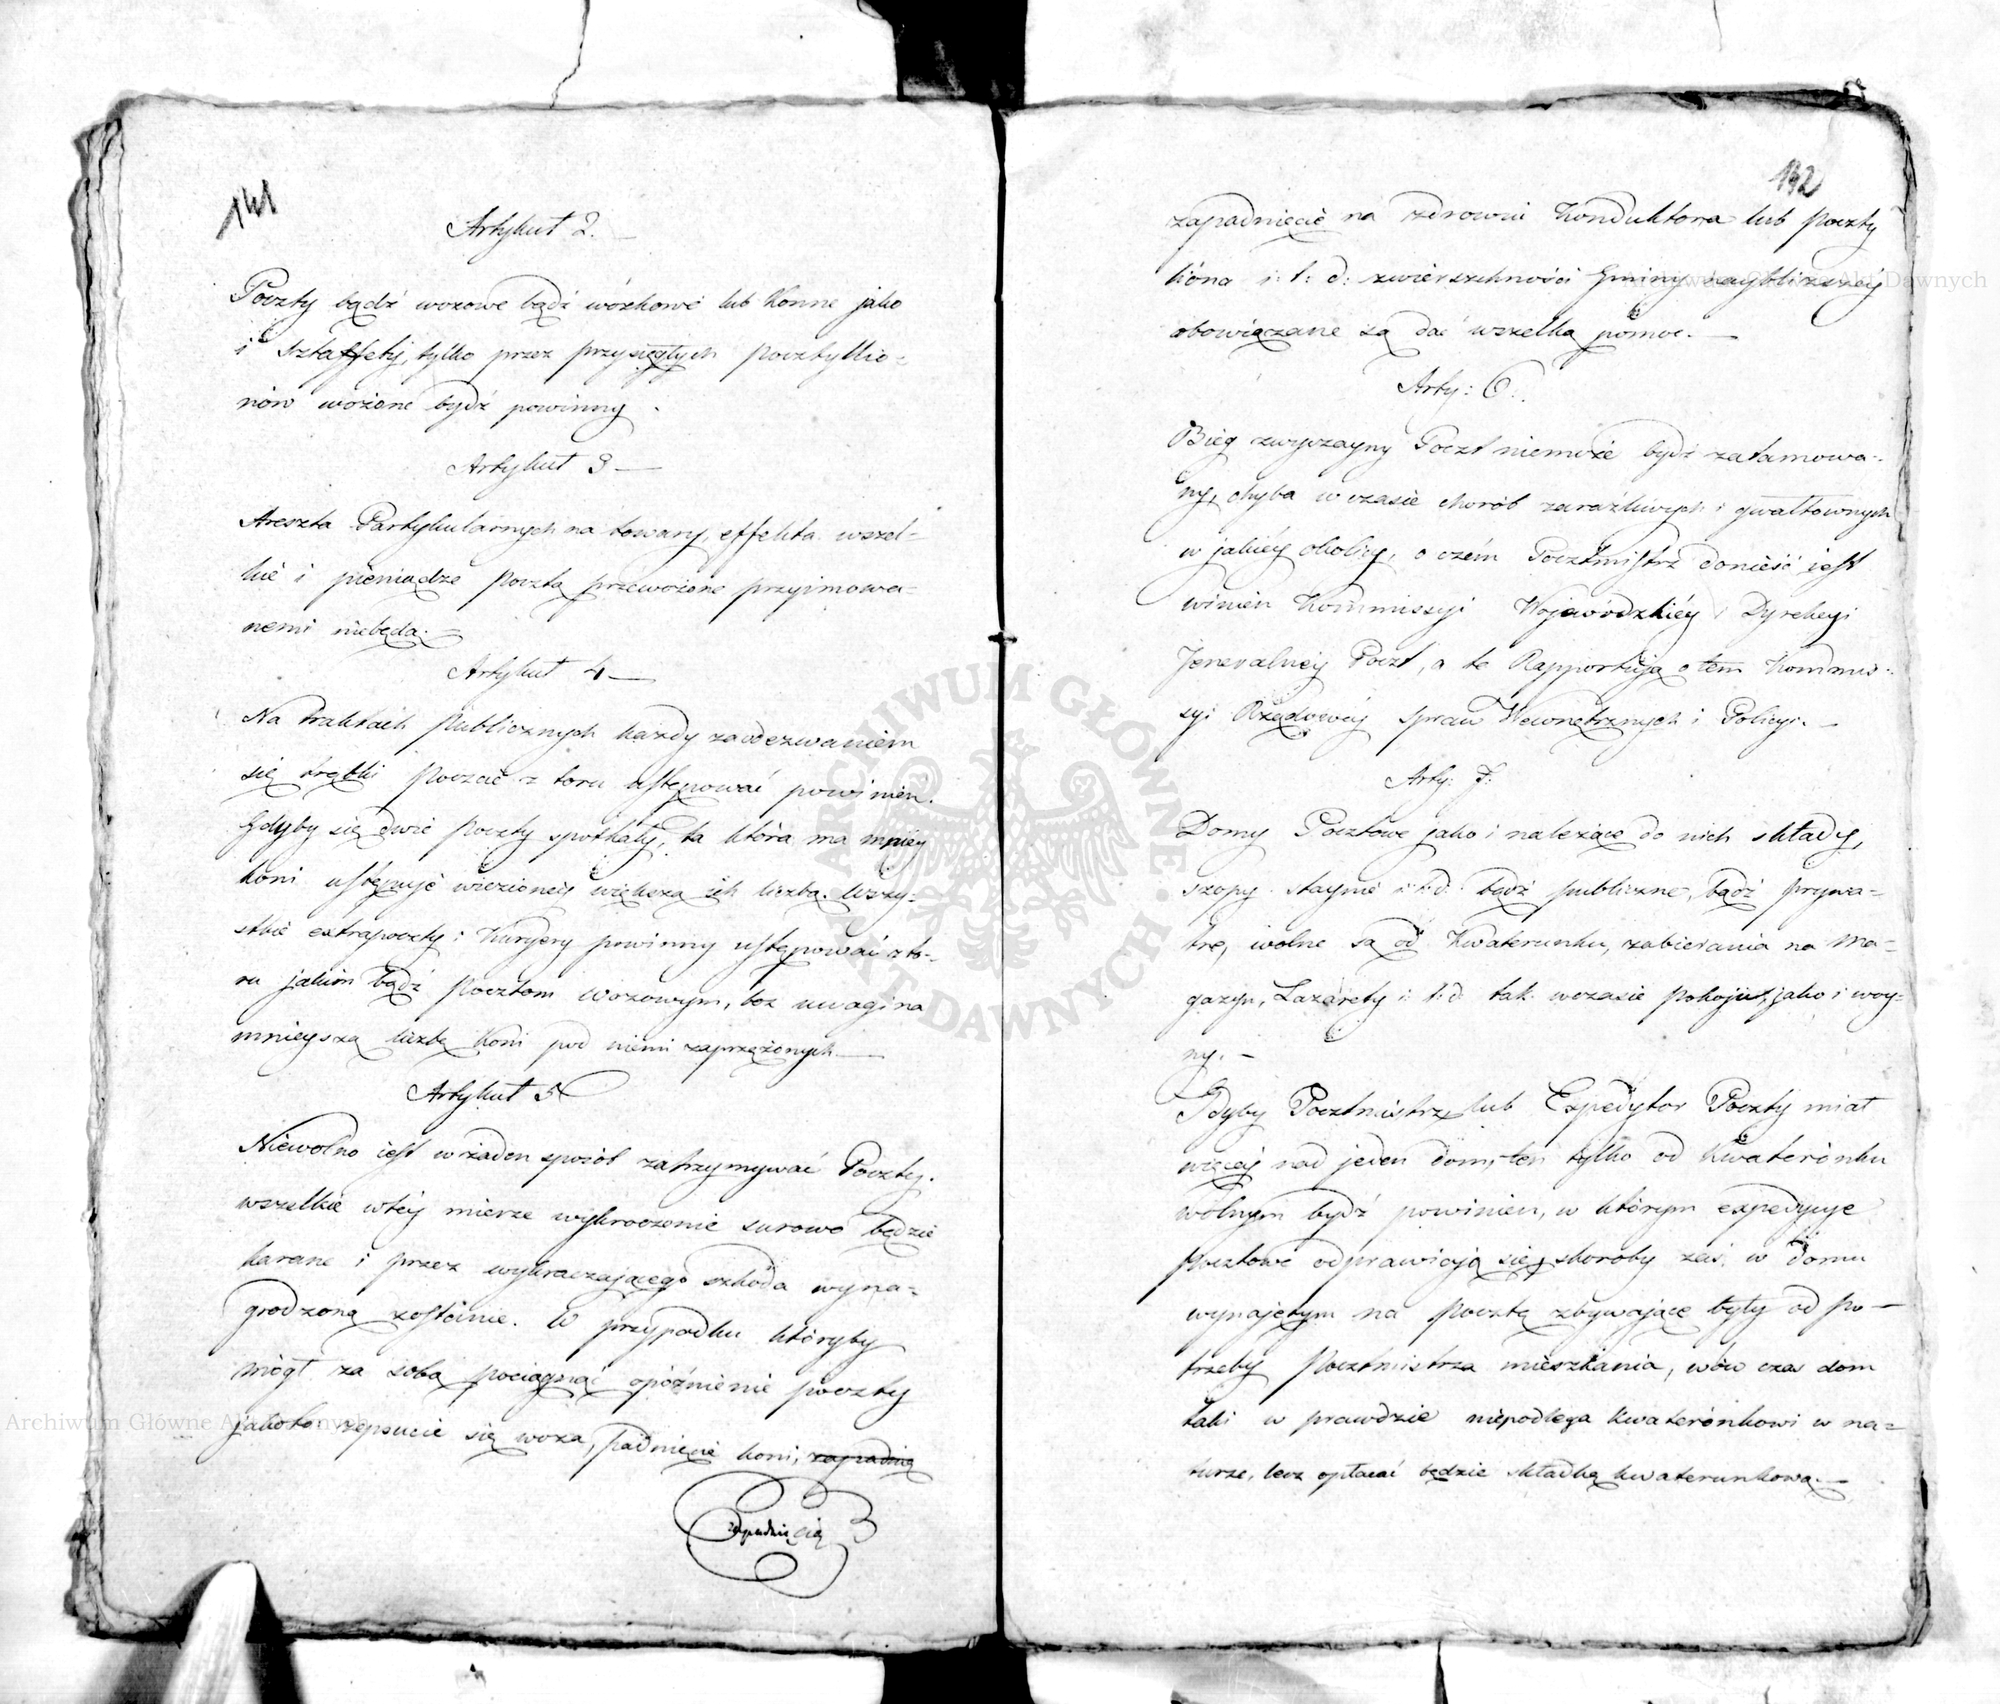 141
Artykuł 2.
Poczty bądź wozowe bądź wózkowe lub konne jako
i sztaffety, tylko przez przysięgłych pocztyllio-
nów wożone bydź powinny.
Artykuł 3
Areszta Partykularnych na towary, effekta wszel-
kie i pieniądze pocztą przewożone przyimowa-
nemi niebędą.
Artykuł 4
Na traktach publicznych każdy za odezwaniem
się trąbki poczcie z toru ustępować powinien.
Gdyby się dwie poczty spotkały, ta która ma mniéy
koni ustępuje wiezionéy większą ich liczbą. Wszy-
stkie extrapoczty i Kuryery powinny ustępować z to-
ru jakim bądź pocztom wozowym, bez uwagi na
mnieyszą liczbę koni pod niemi zaprzężonych
Artykuł 5
Niewolno iest w żaden sposób zatrzymywać Poczty.
wszelkie w téy mierze wykroczenie surowo będzie
karane i przez wykraczającego szkoda wyna-
grodzoną zostanie. W przypadku któryby
mógł za sobą pociągnąć opóźnienie poczty
jako to: zepsucie się woza, padnięcie koni, zapadnię
zapadnięcie
142
zapadnięcie na zdrowiu Konduktora lub poczty
liona i: t: d: zwierzchności Gminy naybliższéy
obowiązane są dać wszelką pomoc.
Arty: 6.
Bieg zwyczayny Poczt niemoże bydź zatamowa-
ny, chyba w czasie chorób zaraźliwych i gwałtownych
w jakiéy okolicy, o czém Pocztmistrz donieść iest
winien Kommissyi Wojewódzkiéy i Dyrekcyi
Jeneralnéy Poczt, a te Rapportują o tem Kommis-
syi Rządowéy Spraw Wewnętrznych i Policyi.
Arty: 7:
Domy Pocztowe jako i należące do nich składy,
szopy staynie i: t: d: bądź publiczne, bądź prywa-
tne, wolne są od Kwaterunku, zabierania na ma-
gazyn, Lazarety i: t: d: tak w czasie pokoju, jako i woy-
ny.
Gdyby Pocztmistrz lub Expedytor Poczty miał
więcéy nad jeden dom, ten tylko od Kwaterunku
wolnym bydź powinien, w którym expedycye
pocztowe odprawiają się, skoroby zaś w domu
wynajętym na pocztę zbywające były od po-
trzeby pocztmistrza mieszkania, wów czas dom
taki w prawdzie niepodlega kwaterunkowi w na-
turze, lecz opłacać będzie składkę kwaterunkową.
Archiwum Główne Akt Dawnych
ARCHIWUM GŁÓWNE AKT DAWNYCH
Archiwum Główne Akt Dawnych